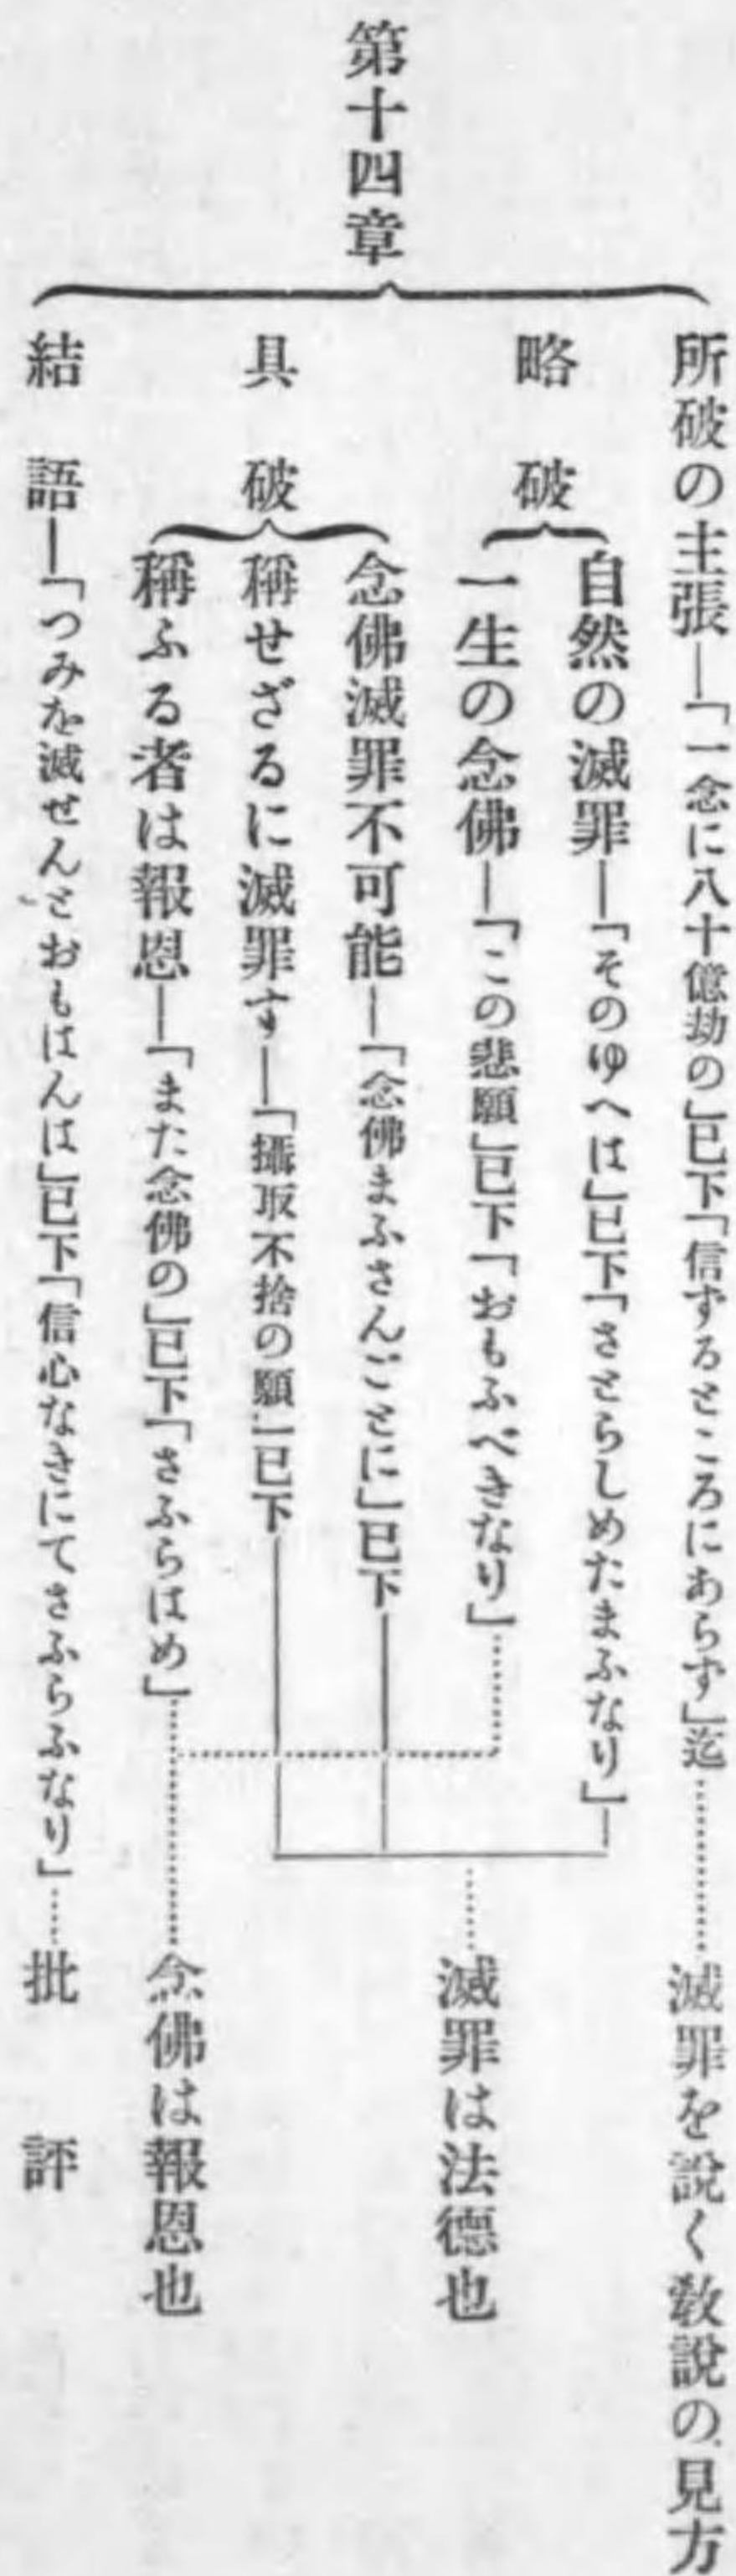 第十四章
所破の主張―「一念に八十億劫の」已下「信ずるところにあらず」迄……滅罪を説く教説の見方
略破
自然の滅罪―「そのゆへは」已下「さとらしめたまふなり」
一生の念佛―「この悲願」已下「おもふべきなり」
具破
念佛滅罪不可能―「念佛まふさんごとに」已下
稱せざるに滅罪す―「攝取不捨の願」已下
稱ふる者は報恩―「また念佛の」已下「さふらはめ」
滅罪は法德也
念佛は報恩也
結語―「つみを滅せんとおもはんは」已下「信心なきにてさふらふなり」……批評